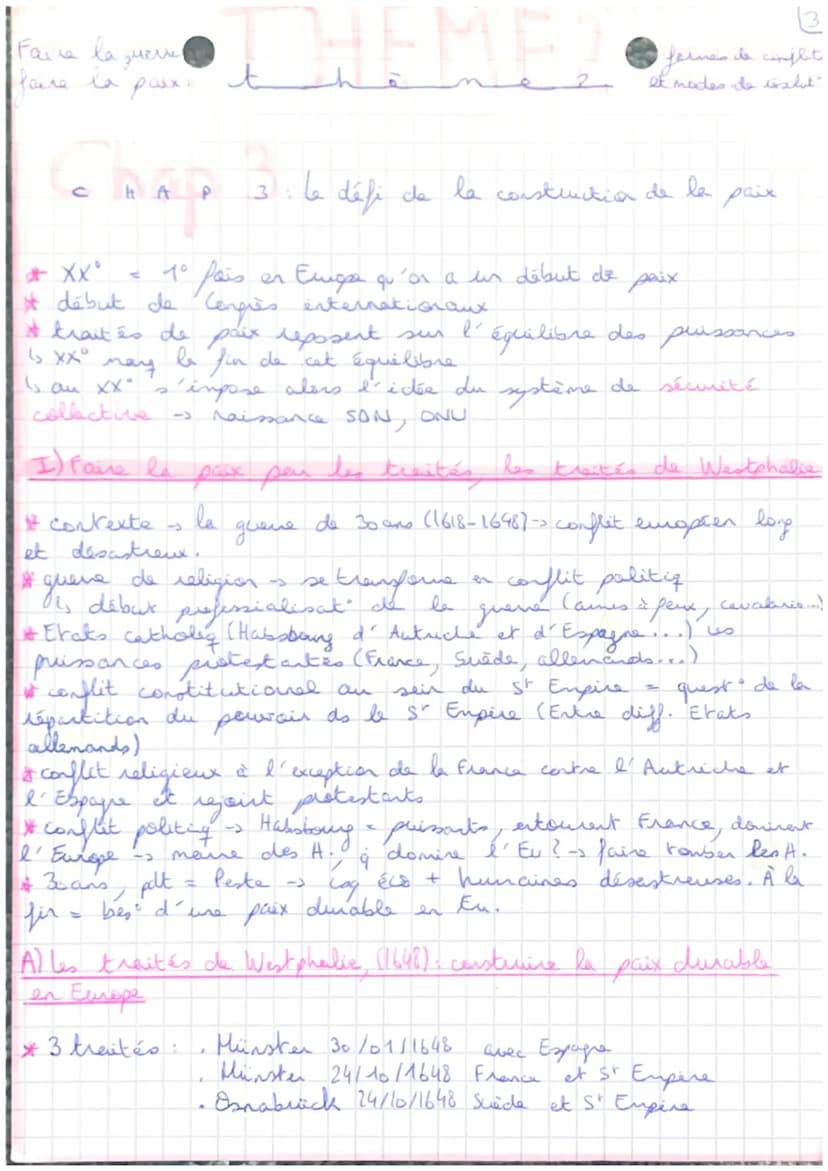 3
Faire la guerre
faire la paix
THEME 2
thème 2
formes de conflit
et modes de résolut°
Chap 3
CHAP 3 : le défi de la construction de la paix
* XX° = 1° fois en Europe qu'on a un début de paix
* début de Congrès internationaux
* traités de paix reposent sur l'équilibre des puissances
↳ XX° marq la fin de cet équilibre
↳ au XX° s'impose alors l'idée du système de sécurité
collective -> naissance SDN, ONU
I) Faire la paix par les traités, les traités de Westphalie
* contexte -> la guerre de 30 ans (1618-1648) -> conflit européen long
et désastreux.
* guerre de religion -> se transforme en conflit politiq
↳ début professialisat° de la guerre (armes à feux, cavalerie...)
* Etats catholiq (Habsbourg d'Autriche et d'Espagne...) vs
puissances protestantes (France, Suède, allemands...)
* conflit constitutionnel au sein du St Empire = quest° de la
répartition du pouvoir ds le St Empire (Entre diff. Etats
allemands)
* conflit religieux à l'exception de la France contre l'Autriche et
l'Espagne et rejoint protestants
* conflit politiq -> Habsbourg = puissants, entourent France, dominent
l'Europe -> menace des H., q domine l'Eu ? -> faire tomber les H.
* 30 ans, plt = Peste -> csq éco + humaines désastreuses. À la
fin = bes° d'une paix durable en Eu.
A) les traités de Westphalie, (1648) : construire la paix durable
en Europe
* 3 traités : . Münster 30/01/1648 avec Espagne
. Münster 24/10/1648 France et St Empire
. Osnabrück 24/10/1648 Suède et St Empire